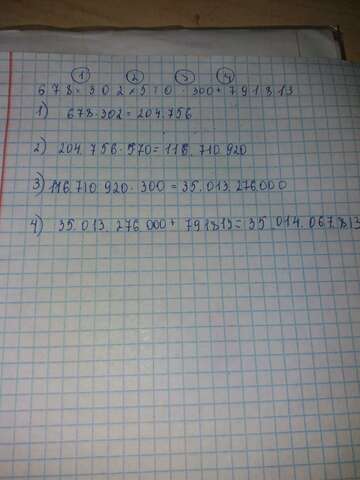 ① ② ③ ④
678·302×570·300+791813
1) 678·302=204.756
2) 204.756·570=116.710920
3) 116.710920·300=35.013.276.000
4) 35.013.276.000+791813=35.014.067.813